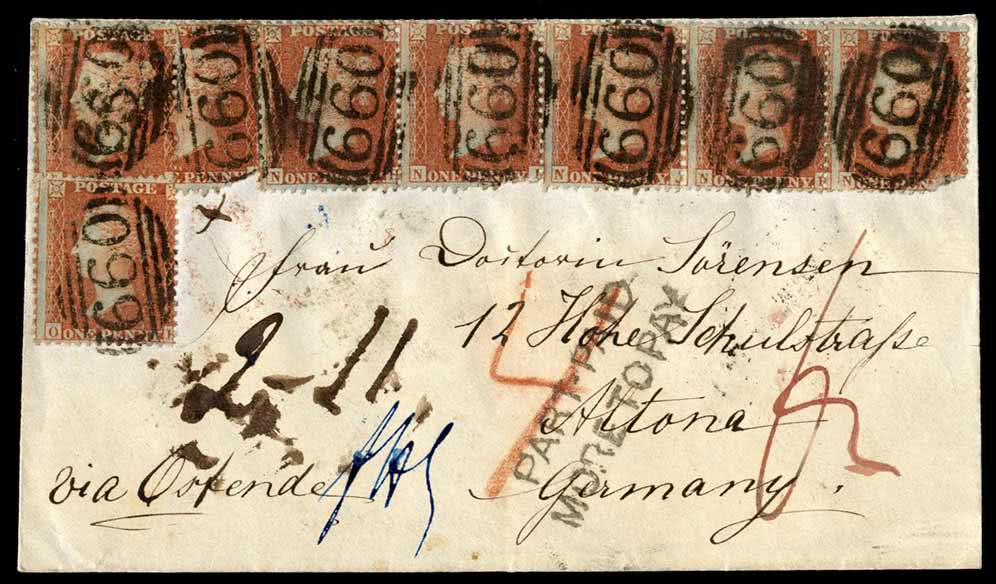 POSTAGE POSTAGE POSTAGE POSTAGE POSTAGE POSTAGE
660 660 660 660 660 660 660
PENNY N ONE PENNY N ONE PENNY N ONE PENNY N ONE PENNY N ONE PENNY
POSTAGE
660
O ONE PENNY
Frau Doctorin Sörensen
12 Hohe Schulstraße
Altona
Germany.
via Ostende
2-11
4
PART-PAID
MORE TO PAY